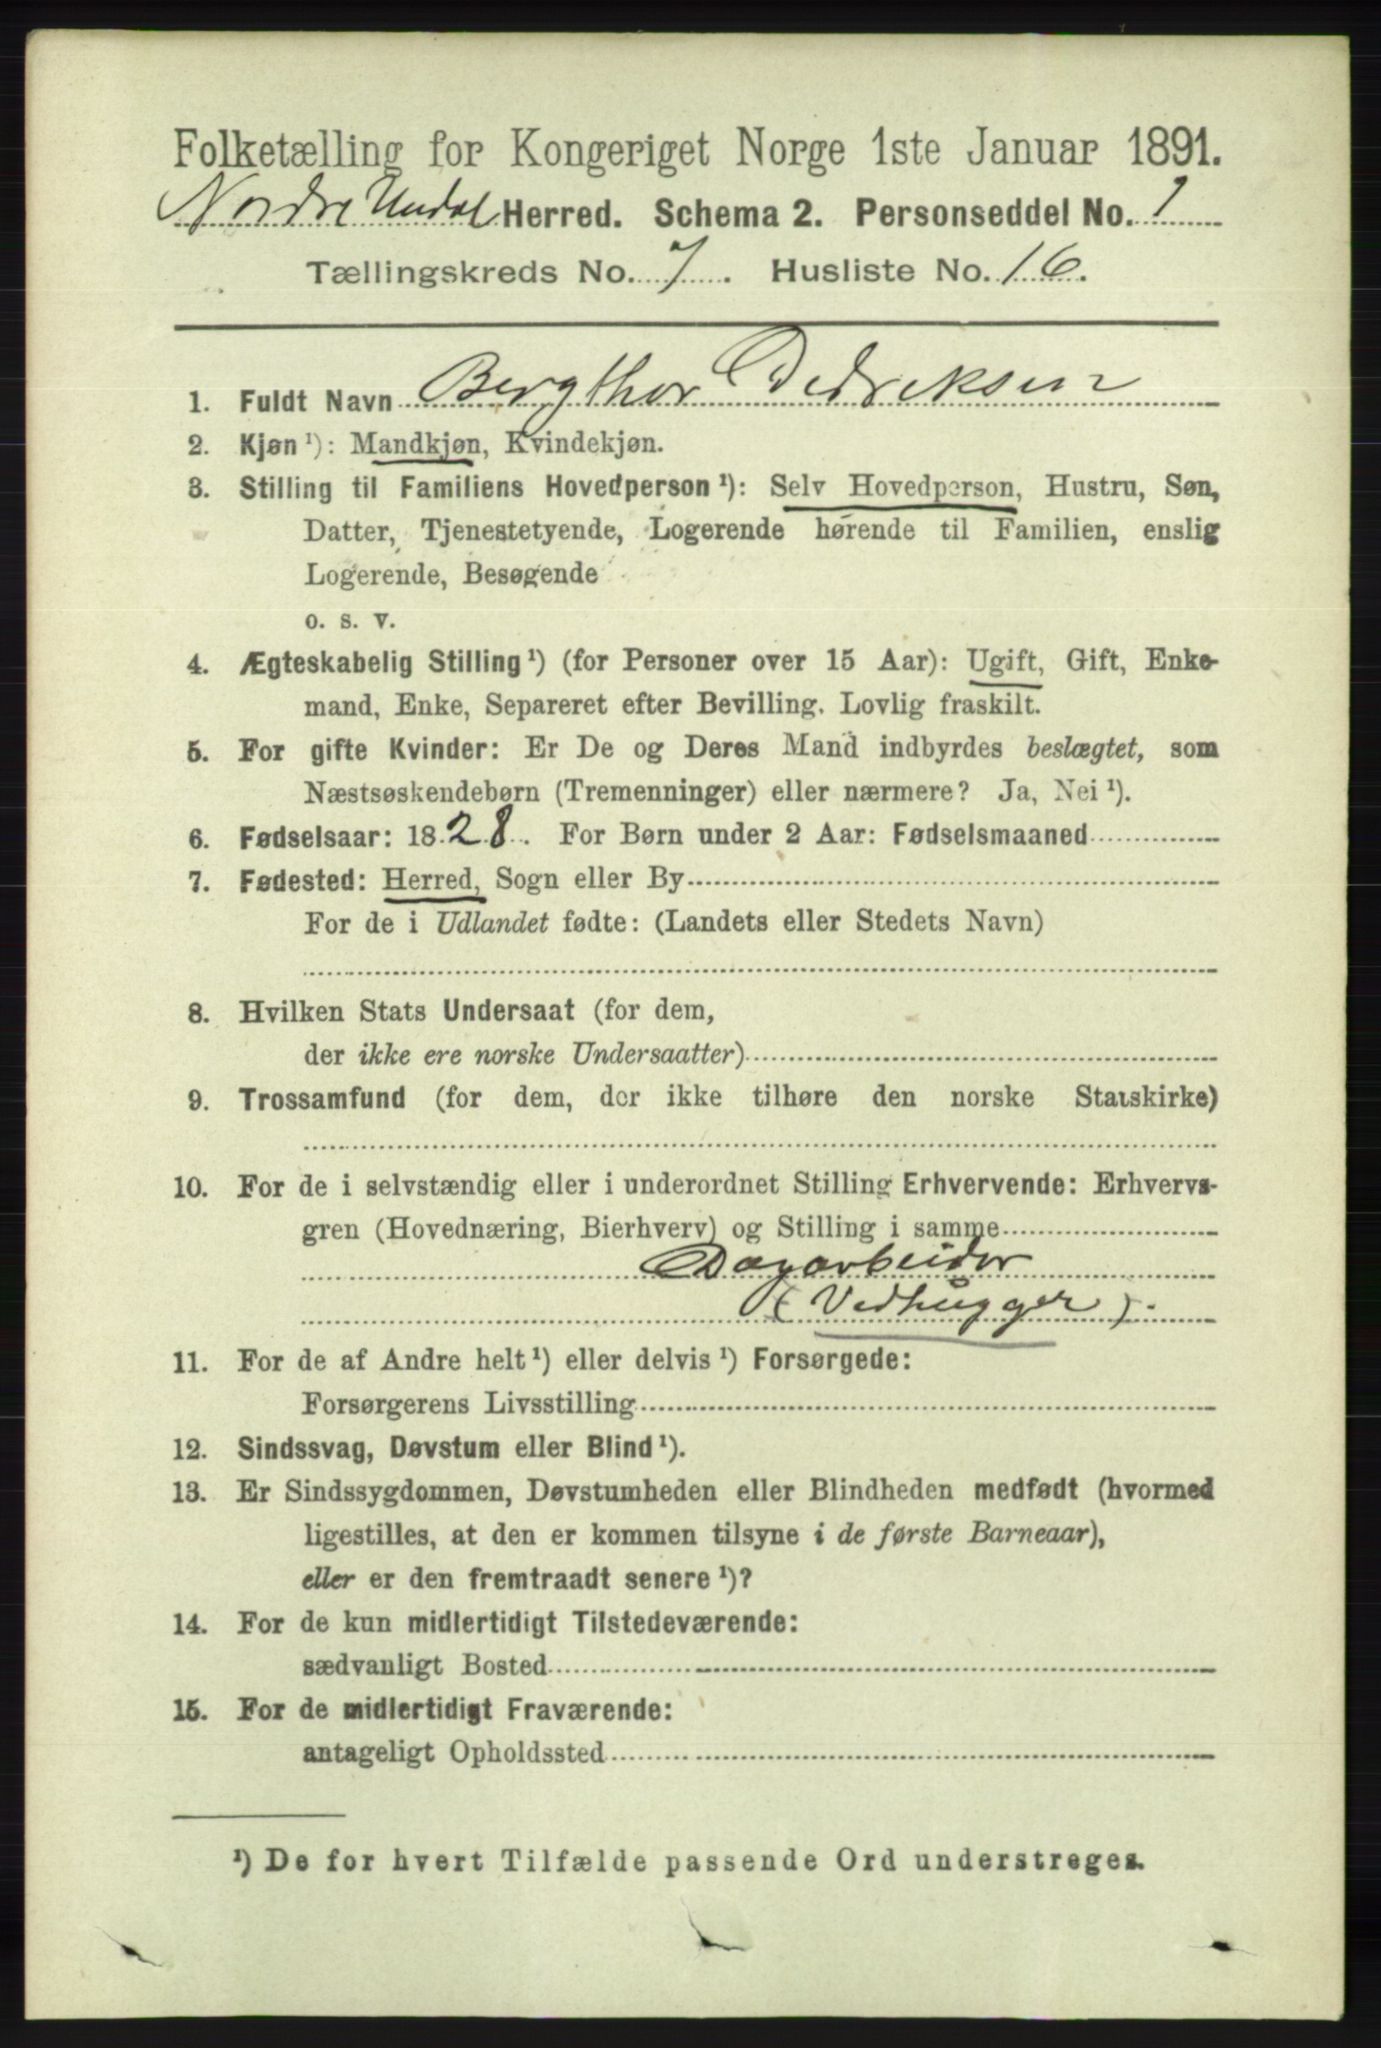 Folketælling for Kongeriget Norge 1ste Januar 1891.
Nordre Undal Herred. Schema 2. Personseddel No. 1
Tællingskreds No. 7. Husliste No. 16.
1. Fuldt Navn Bergthor Didreksen
2. Kjøn ¹): Mandkjøn, Kvindekjøn.
3. Stilling til Familiens Hovedperson ¹): Selv Hovedperson, Hustru, Søn,
Datter, Tjenestetyende, Logerende hørende til Familien, enslig
Logerende, Besøgende
o. s. v.
4. Ægteskabelig Stilling ¹) (for Personer over 15 Aar): Ugift, Gift, Enke-
mand, Enke, Separeret efter Bevilling. Lovlig fraskilt.
5. For gifte Kvinder: Er De og Deres Mand indbyrdes beslægtet, som
Næstsøskendebørn (Tremenninger) eller nærmere? Ja, Nei ¹).
6. Fødselsaar: 1828. For Børn under 2 Aar: Fødselsmaaned
7. Fødested: Herred, Sogn eller By
For de i Udlandet fødte: (Landets eller Stedets Navn)
8. Hvilken Stats Undersaat (for dem,
der ikke ere norske Undersaatter)
9. Trossamfund (for dem, der ikke tilhøre den norske Statskirke)
10. For de i selvstændig eller i underordnet Stilling Erhvervende: Erhvervs-
gren (Hovednæring, Bierhverv) og Stilling i samme
Dagarbeider
(Vedhugger).
11. For de af Andre helt ¹) eller delvis ¹) Forsørgede:
Forsørgerens Livsstilling
12. Sindssvag, Døvstum eller Blind ¹).
13. Er Sindssygdommen, Døvstumheden eller Blindheden medfødt (hvormed
ligestilles, at den er kommen tilsyne i de første Barneaar),
eller er den fremtraadt senere ¹)?
14. For de kun midlertidigt Tilstedeværende:
sædvanligt Bosted
15. For de midlertidigt Fraværende:
antageligt Opholdssted
¹) De for hvert Tilfælde passende Ord understreges.